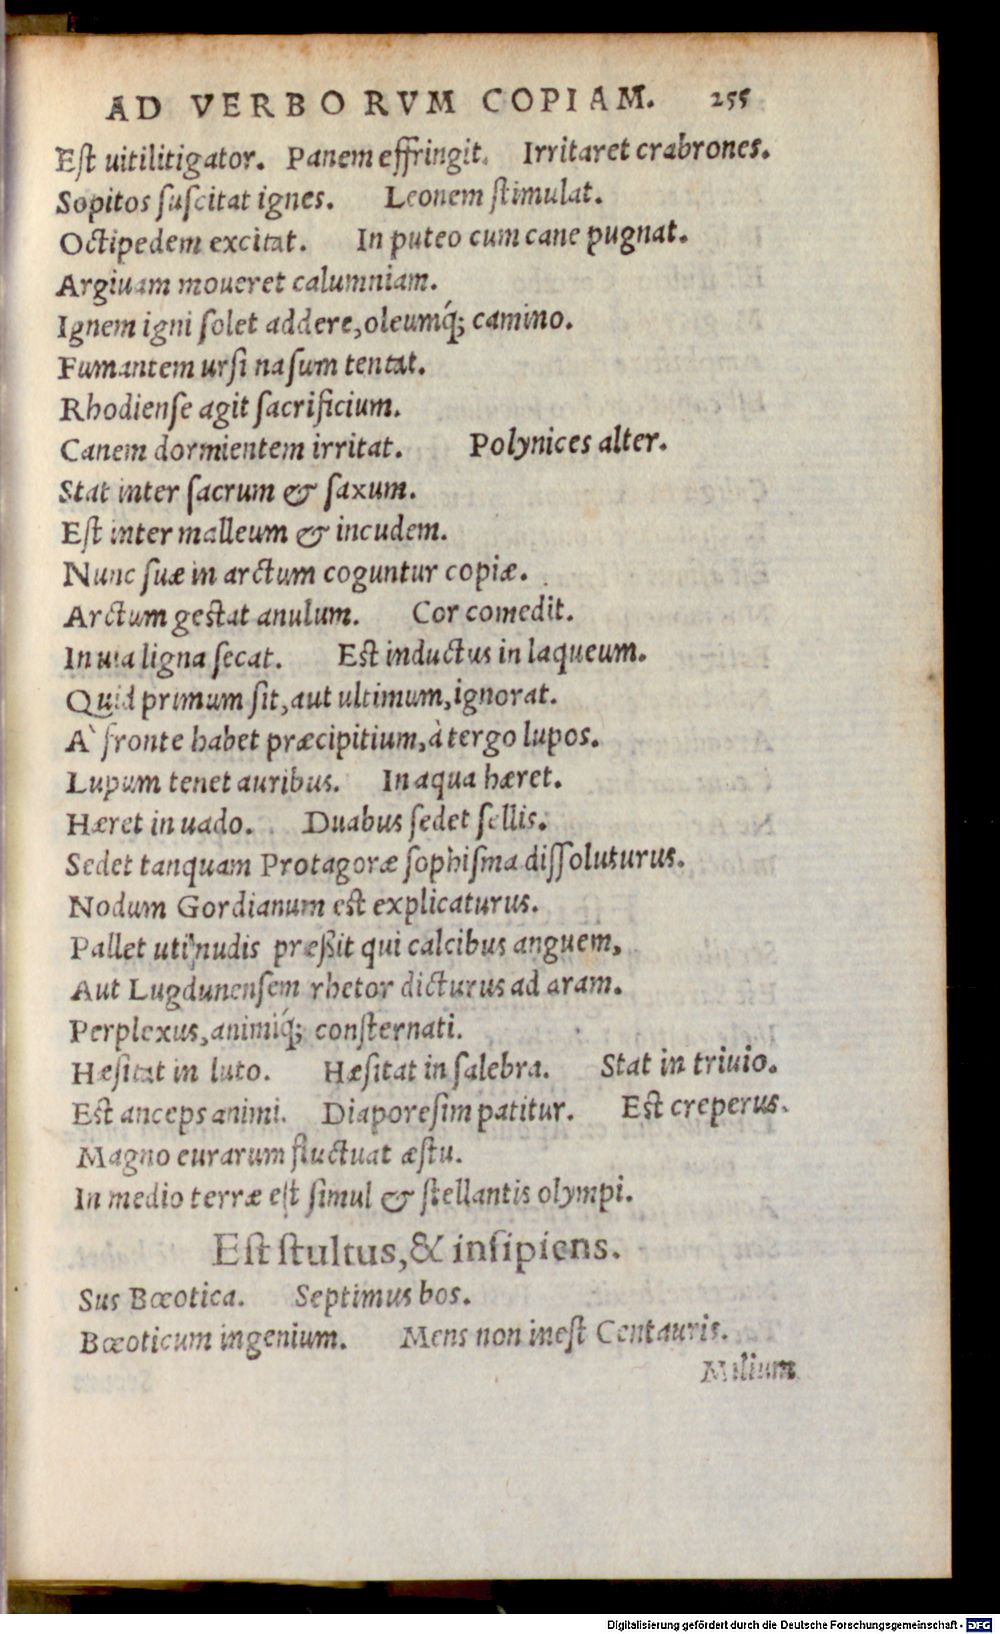 AD VERBORVM COPIAM. 255
Eſt uitilitigator. Panem effringit. Irritaret crabrones.
Sopitos ſuſcitat ignes. Leonem ſtimulat.
Octipedem excitat. In puteo cum cane pugnat.
Argiuam moueret calumniam.
Ignem igni ſolet addere, oleumq́; camino.
Fumantem urſi naſum tentat.
Rhodienſe agit ſacrificium.
Canem dormientem irritat. Polynices alter.
Stat inter ſacrum & ſaxum.
Eſt inter malleum & incudem.
Nunc ſuæ in arctum coguntur copiæ.
Arctum geſtat anulum. Cor comedit.
In uia ligna ſecat. Eſt inductus in laqueum.
Quid primum ſit, aut ultimum, ignorat.
A` fronte habet præcipitium, à tergo lupos.
Lupum tenet auribus. In aqua hæret.
Hæret in uado. Duabus ſedet ſellis.
Sedet tanquam Protagoræ ſophiſma diſſoluturus.
Nodum Gordianum eſt explicaturus.
Pallet uti nudis preßit qui calcibus anguem,
Aut Lugdunenſem rhetor dicturus ad aram.
Perplexus, animiq́; conſternati.
Hæſitat in luto. Hæſitat in ſalebra. Stat in triuio.
Eſt anceps animi. Diaporeſim patitur. Eſt creperus.
Magno eurarum fluctuat æſtu.
In medio terræ eſt ſimul & ſtellantis olympi.
Eſt ſtultus, & inſipiens.
Sus Bœotica. Septimus bos.
Bœoticum ingenium. Mens non ineſt Centauris.
Milium
Digitalisierung gefördert durch die Deutsche Forschungsgemeinschaft - DFG